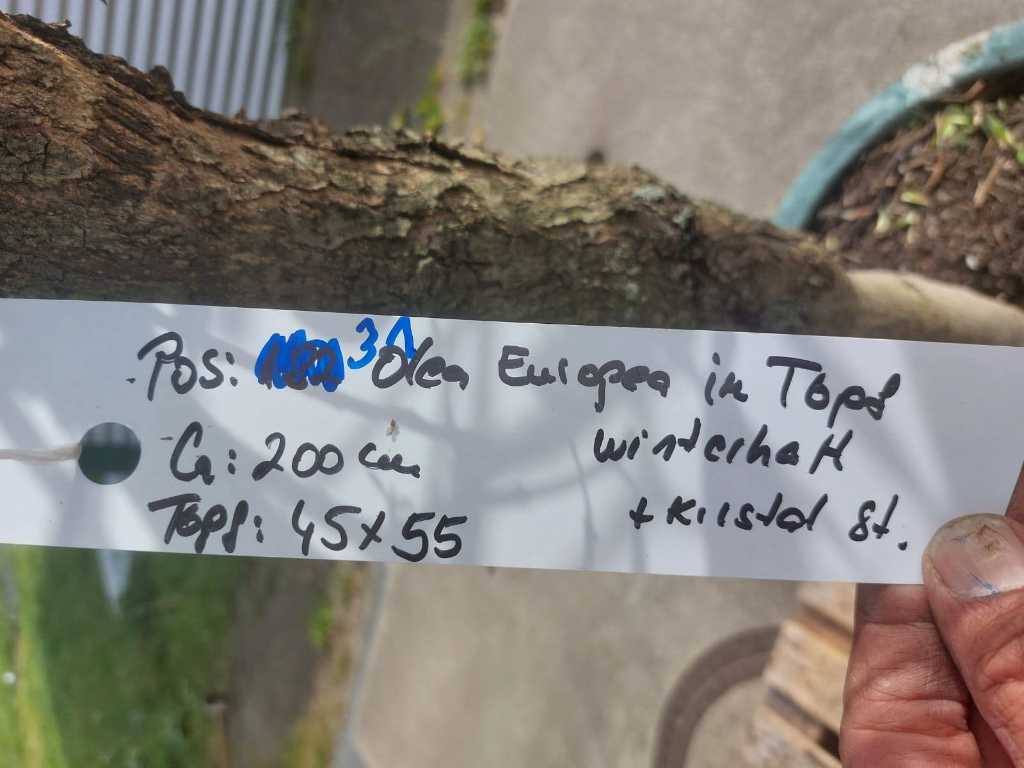 Pos: 31 Olea Europea in Topf
G: 200 cm winterhart
Topf: 45x55 + Kristal St.